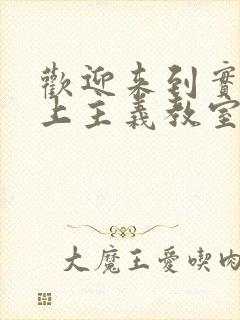 歡迎來到實
上主義教室
大魔王愛喫肉